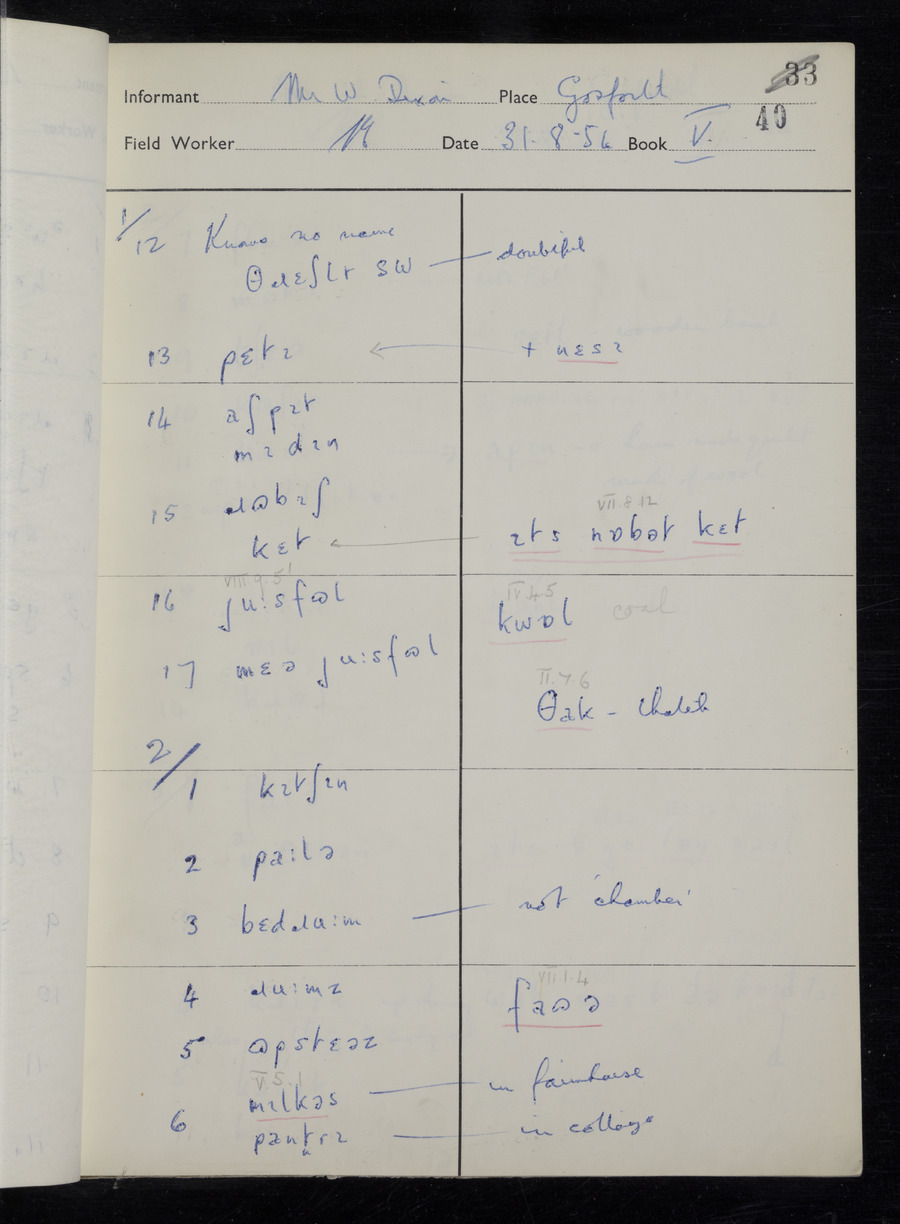 33
Informant Mr W. Dixon Place Gosforth
40
Field Worker Date 31-8-54 Book V.
1/
12 Knows no name
θɹɛʃɪt SW — doubtful
13 pɛtɪ ← + nɛsɪ
14 aʃpɪt
mɪdɪn
15 ɹʊbɪʃ
kɛt ← ɪts nɒbət kɛt
VII.8.12
VIII.9.5
16 ju:sfəl
IV.4.5
kwɒl coal
17 mɛə ju:sfəl
II.7.6
θak - thatch
2/
1 kɪtʃɪn
2 pa:lə
3 bɛdɹu:m — not 'chamber'
4 ɹu:mz
VII.1.4
faʊə
5 ʊpstɛəz
V.5.1
6 mɪlkəs — in farmhouse
pantrɪ — in cottage